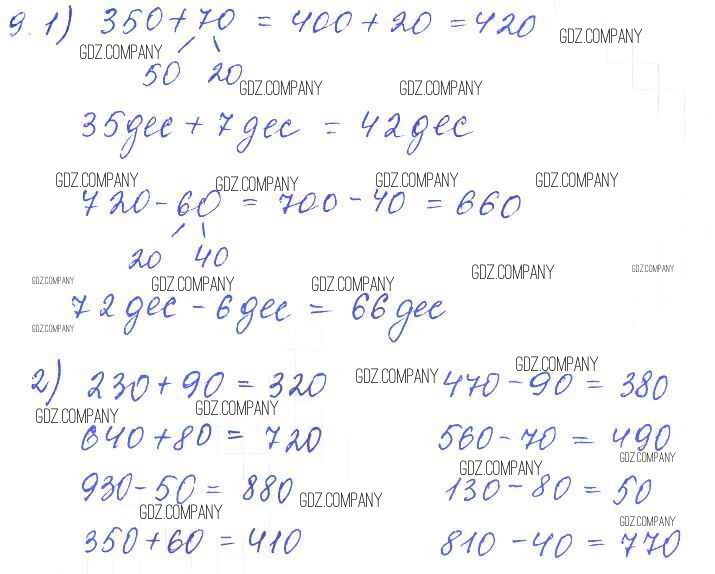 9. 1) 350 + 70 = 400 + 20 = 420
GDZ.COMPANY
GDZ.COMPANY
50 20
GDZ.COMPANY GDZ.COMPANY
35 дес + 7 дес = 42 дес
GDZ.COMPANY GDZ.COMPANY GDZ.COMPANY GDZ.COMPANY
720 - 60 = 700 - 40 = 660
20 40
GDZ.COMPANY GDZ.COMPANY GDZ.COMPANY GDZ.COMPANY GDZ.COMPANY
72 дес - 6 дес = 66 дес
GDZ.COMPANY
GDZ.COMPANY GDZ.COMPANY
2) 230 + 90 = 320 470 - 90 = 380
GDZ.COMPANY GDZ.COMPANY
640 + 80 = 720 560 - 70 = 490
GDZ.COMPANY GDZ.COMPANY
930 - 50 = 880 130 - 80 = 50
GDZ.COMPANY GDZ.COMPANY GDZ.COMPANY
350 + 60 = 410 810 - 40 = 770